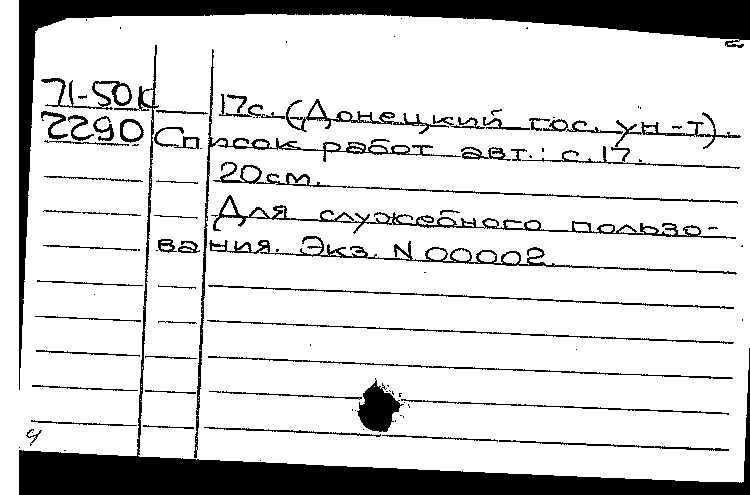 71-50К 17с. (Донецкий гос. ун-т).
2290 Список работ авт.: с.17.
20см.
Для служебного пользо-
вания. Экз. N 00002.